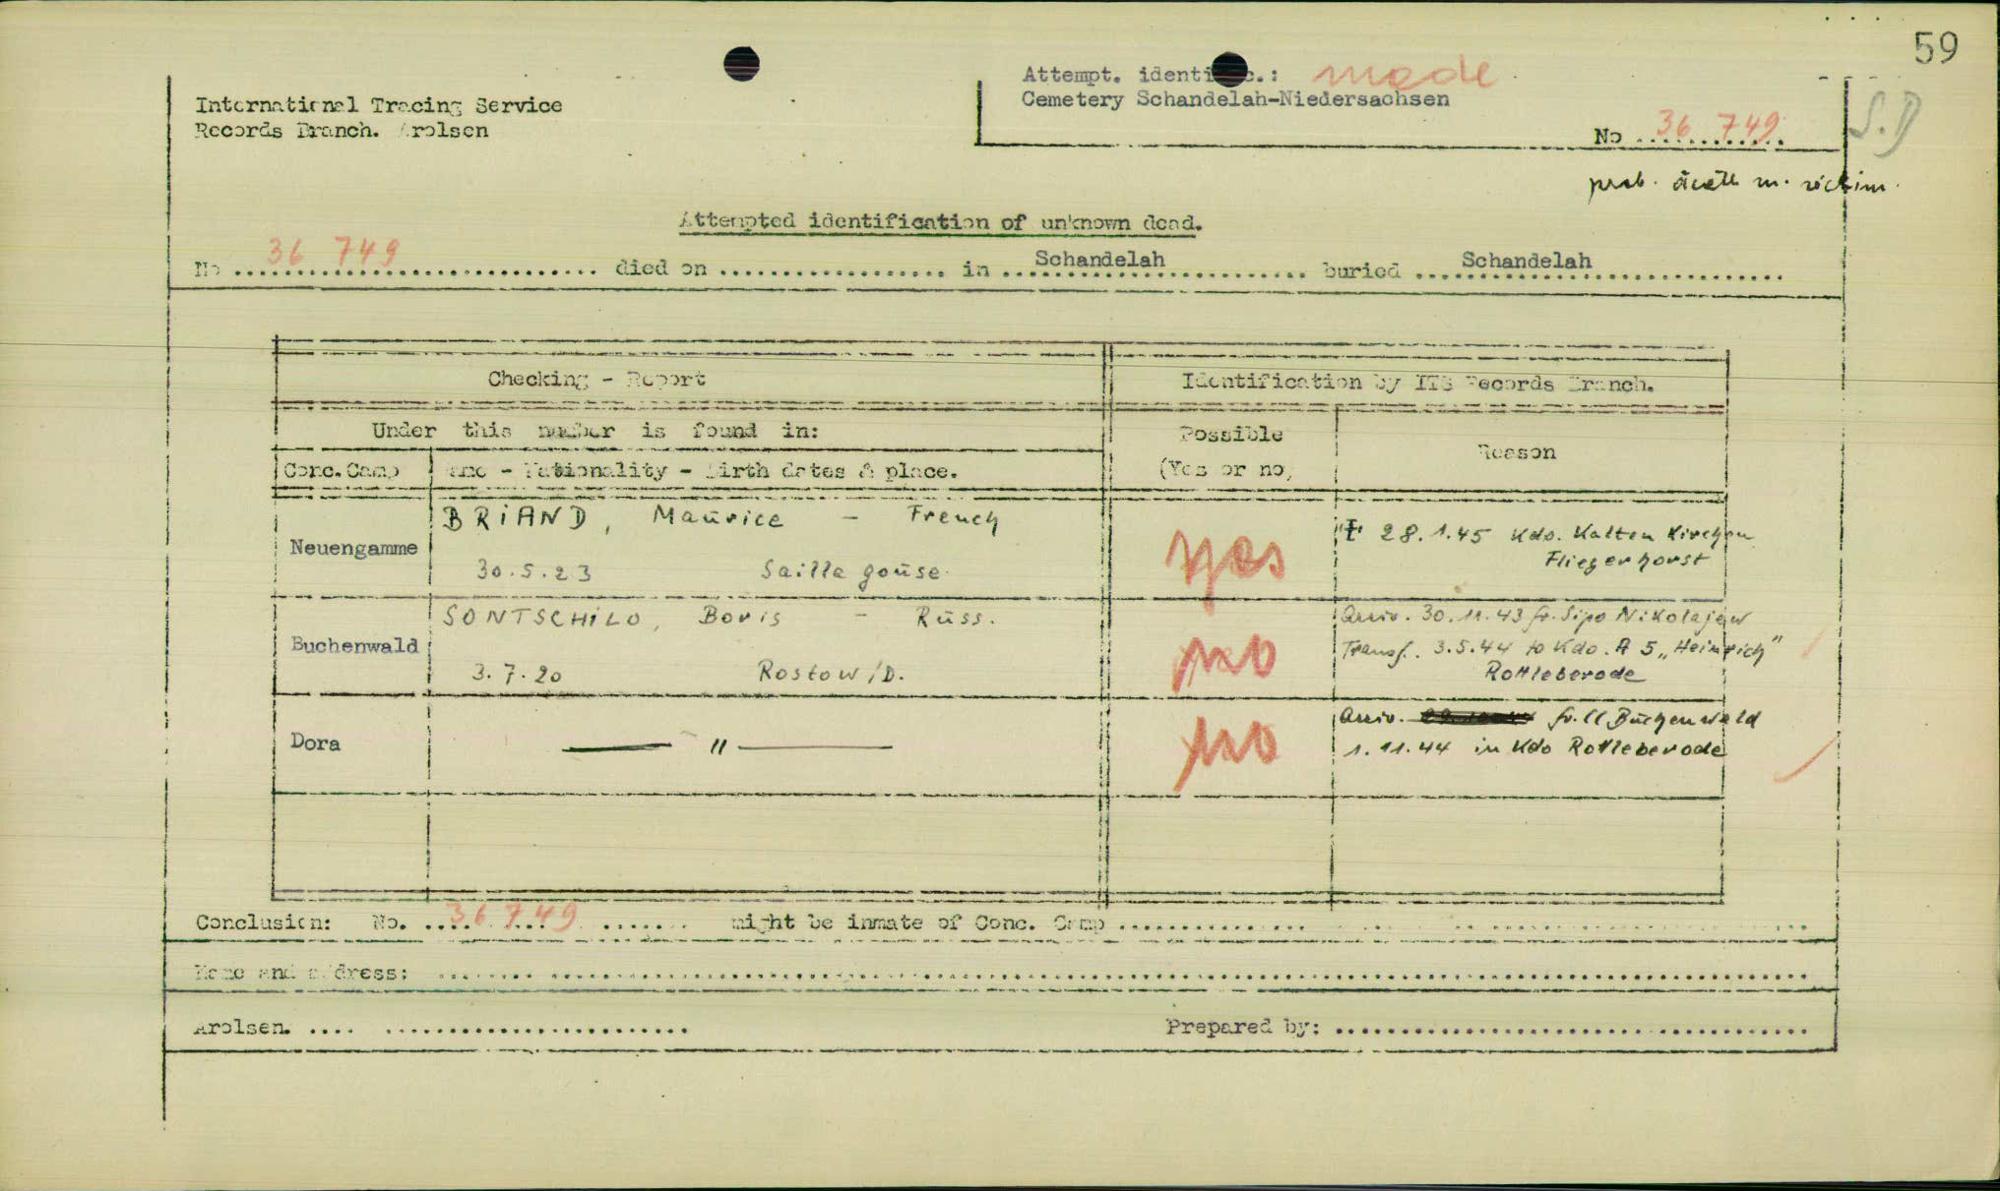 59
Attempt. identific.: made
Cemetery Schandelah-Niedersachsen
International Tracing Service
Records Branch. Arolsen
No 36 749
S.D
prob. death m.
Attempted identification of unknown dead.
No 36 749 died on .................. in Schandelah buried Schandelah
Checking - Report
Identification by ITS Records Branch.
Under this number is found in:
Possible
(Yes or no)
Reason
Conc.Camp
Name - Nationality - Birth dates & place.
Neuengamme
BRIAND, Maurice - French
30.5.23 Saillagouse
yes
28.1.45 Kdo. Kaltenkirchen
Fliegerhorst
Buchenwald
SONTSCHILO, Boris - Russ.
3.7.20 Rostow/D.
no
Arriv. 30.11.43 fr. Sipo Nikolajew
Transf. 3.5.44 to Kdo. A 5 „Heinrich”
Rottleberode
Dora
— " —
no
Arriv. fr. Cl Buchenwald
1.11.44 in Kdo Rottleberode
Conclusion: No. 36749 might be inmate of Conc. Camp ...............
Name and address: ...............
Arolsen. .... .......................
Prepared by: ...............